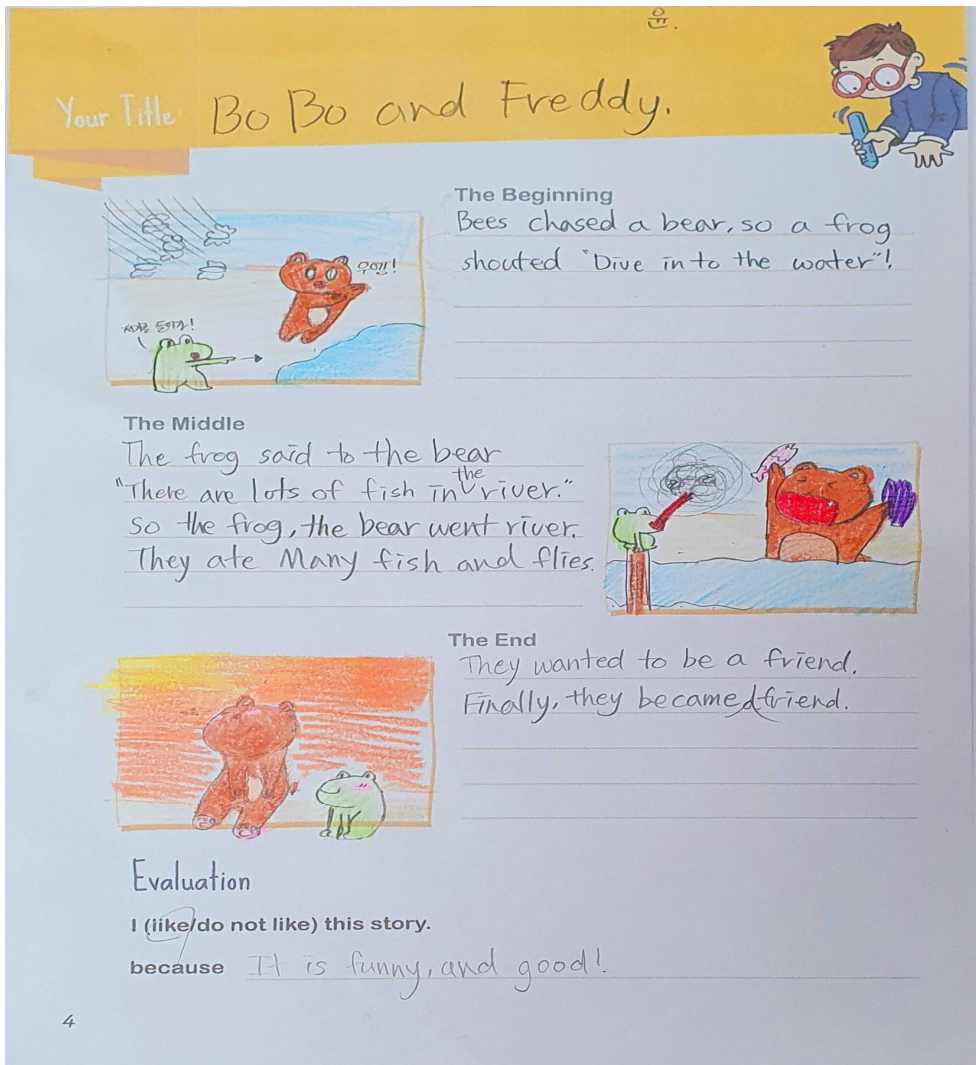 윤.
Your Title Bo Bo and Freddy.
The Beginning
Bees chased a bear, so a frog
shouted "Dive in to the water"!
우엔!
The Middle
The frog said to the bear
"There are lots of fish in the river."
So the frog, the bear went river.
They ate Many fish and flies.
The End
They wanted to be a friend.
Finally, they became friend.
Evaluation
I (like/do not like) this story.
because It is funny, and good!
4